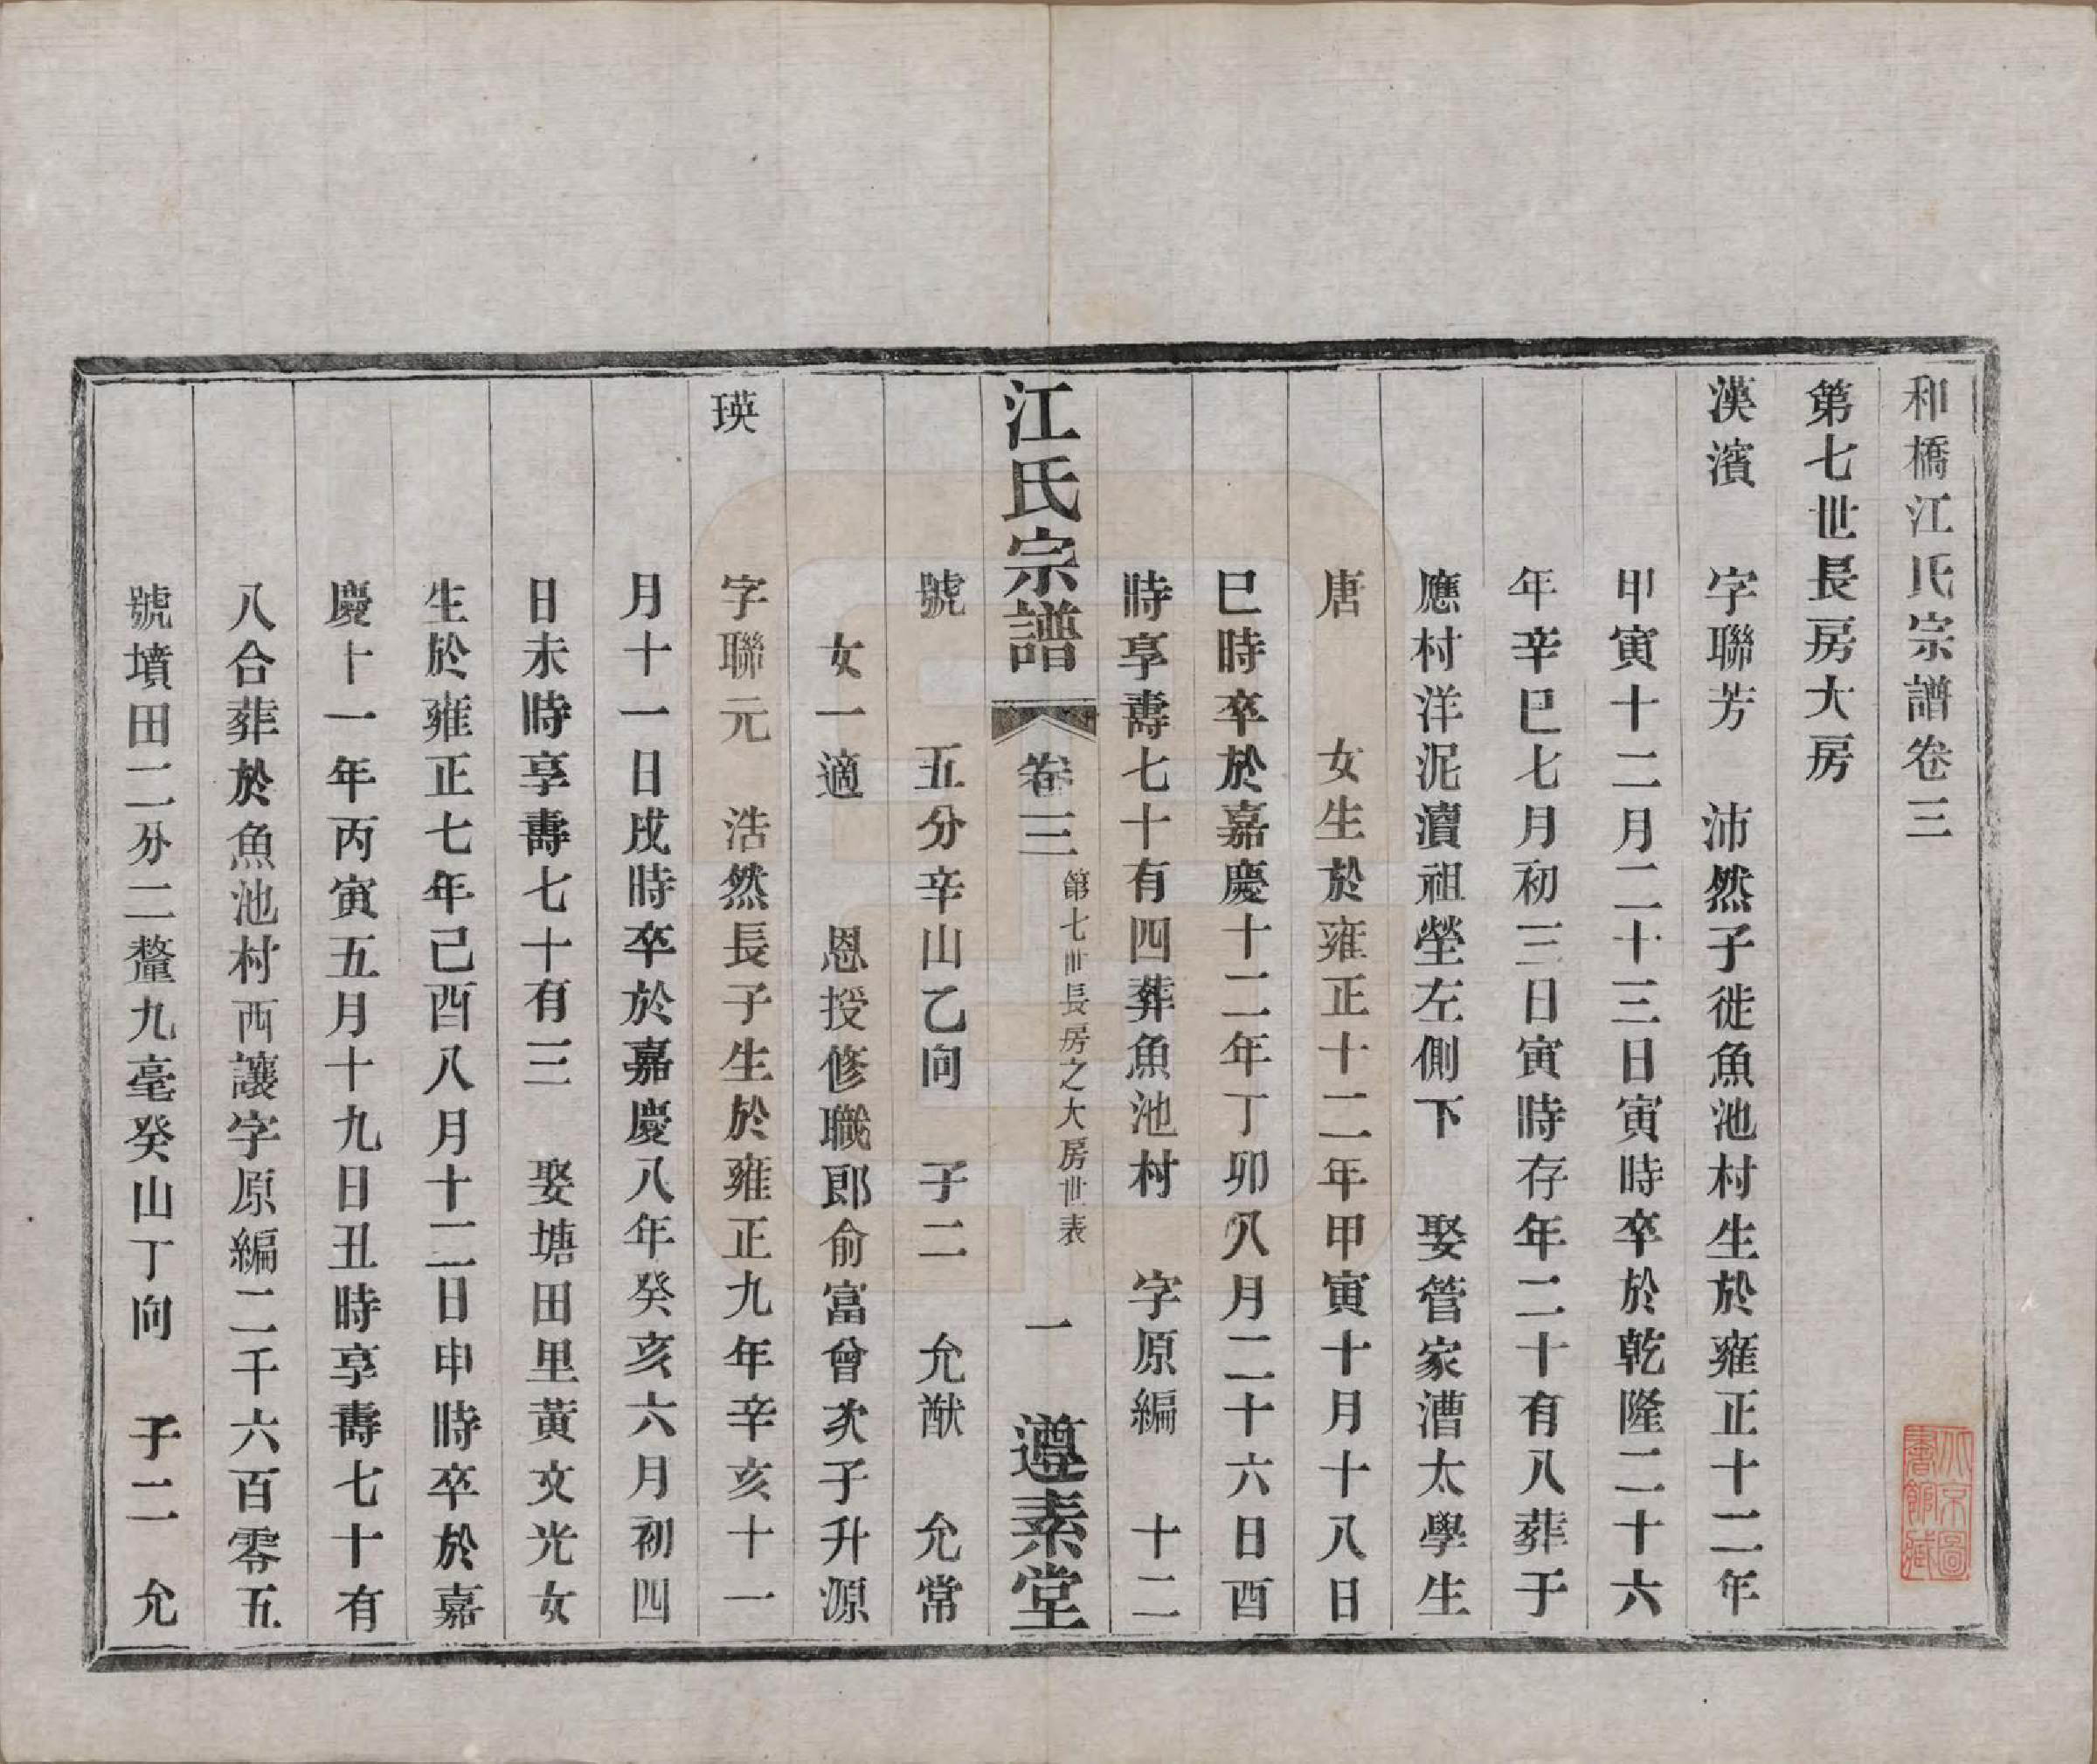 和橋江氏宗譜卷三
第七世長房大房
漢濱　字聯芳　沛然子徙魚池村生於雍正十二年
甲寅十二月二十三日寅時卒於乾隆二十六
年辛巳七月初三日寅時存年二十有八葬于
應村洋泥瀆祖塋左側下　娶管家漕太學生
唐　女生於雍正十二年甲寅十月十八日
巳時卒於嘉慶十二年丁卯八月二十六日酉
時享壽七十有四葬魚池村　字原編　十二
江氏宗譜　卷三　第七世長房之大房世表　一　遵素堂
號　五分辛山乙向　子二　允猷　允常
女一適　恩授修職郎俞富曾次子升源
瑛　字聯元　浩然長子生於雍正九年辛亥十一
月十一日戌時卒於嘉慶八年癸亥六月初四
日未時享壽七十有三　娶塘田里黄文光女
生於雍正七年己酉八月十二日申時卒於嘉
慶十一年丙寅五月十九日丑時享壽七十有
八合葬於魚池村西讓字原編二千六百零五
號墳田二分二釐九毫癸山丁向　子二　允
北京圖
書館藏